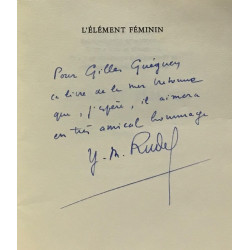 L'ÉLÉMENT FÉMININ
Pour Gilles Guéguen
ce livre de la mer bretonne
que, j'espère, il aimera
en très amical hommage
Y. M. Rudel